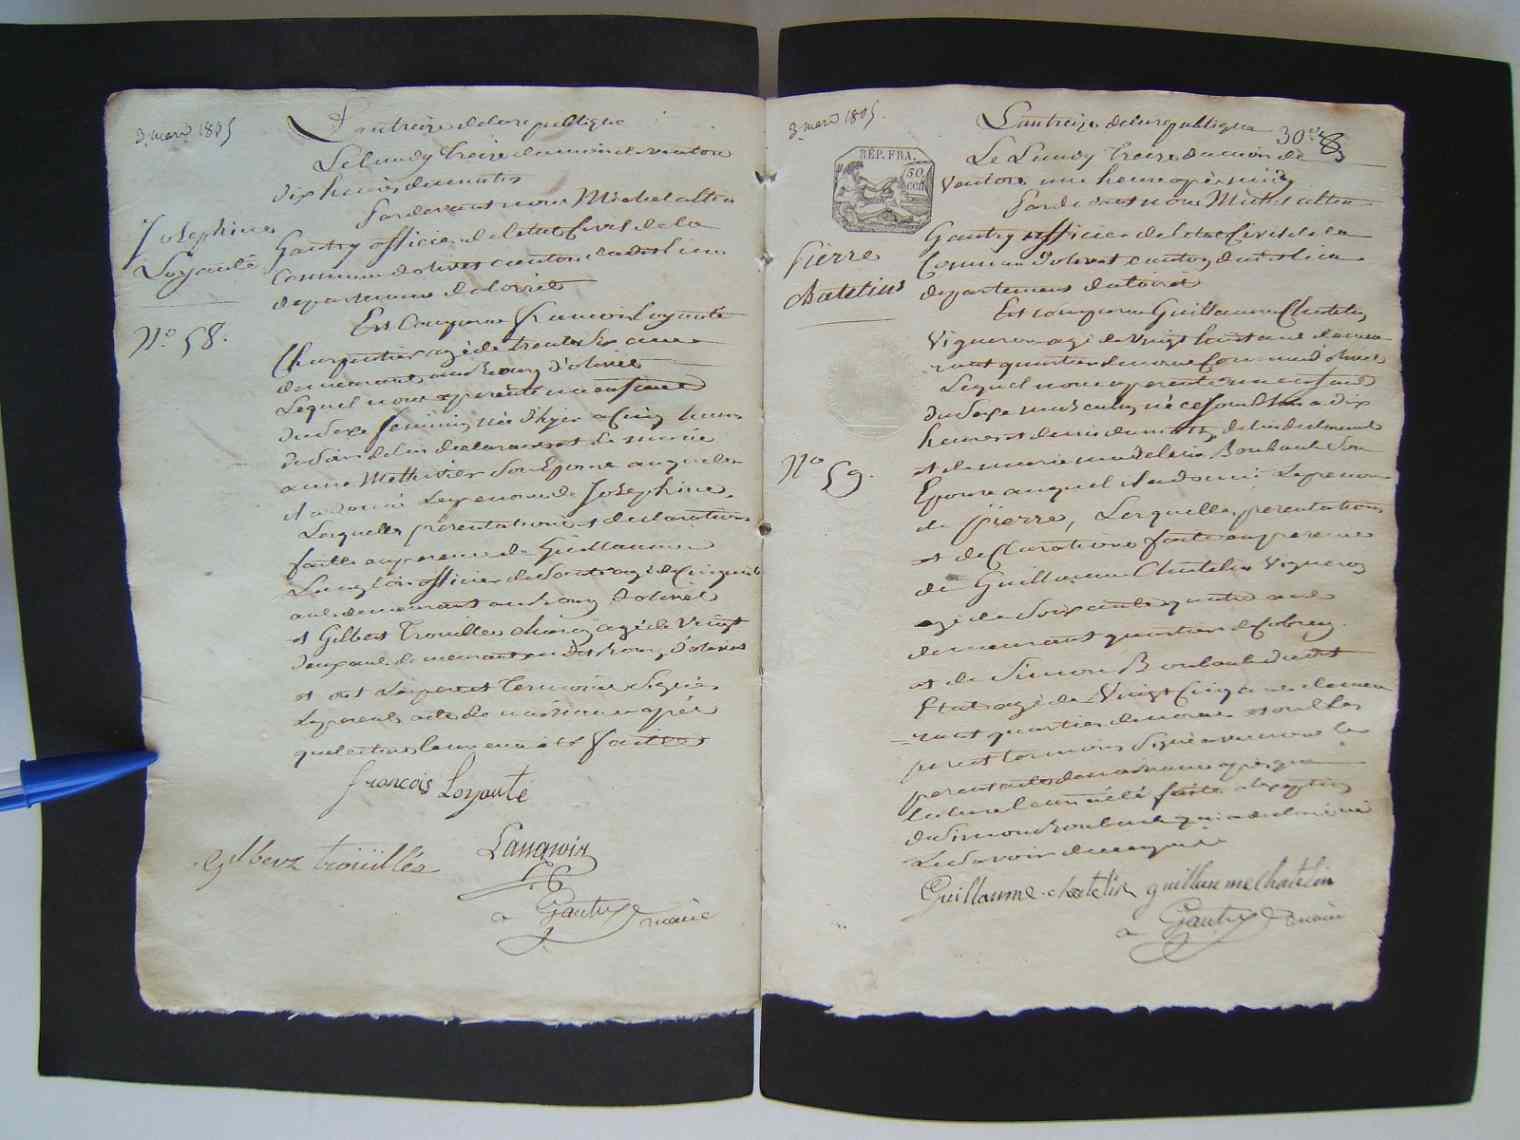 3 mars 1805
L'an treize de la republique
Le lundy treize du mois de ventose
dix heures du matin
Par devant nous Michel altin
Josephine
Loyauté
Gautry officier de l'etat Civil de la
Commune d'olivet canton du dit lieu
departement du loiret
No. 58.
Est comparu francois Loyauté
Charpentier agé de trente ans
demeurant au bourg d'olivet
Lequel nous a presenté un enfant
du sexe feminin née d'hyer a Cinq heures
du soir de lui declarant et de marie
anne Methivier Son Epouse auquel
il a donné le prenom de Josephine.
Lesquelles presentation et declaration
faite en presence de Guillaume
Langlois officier de santé agé de Cinquante
ans demeurant au bourg d'olivet
et Gilbert Trouillée agé de vingt
deux ans demeurant au dit bourg d'olivet
et ont Les peres et temoins signé
Le present acte de naissance apres
que lecture leur en a été faite
francois Loyauté
Gilbert trouillée
Langlois
Gautry maire
3 mars 1805.
L'an treize de la republique
30e
RÉP. FRA.
50
CEN
Le Lundy treize du mois de
ventose une heure apres midy
Par devant nous Michel altin
Pierre
Chatelin
Gautry officier de l'etat Civil de la
Commune d'olivet canton du dit lieu
departement du loiret
Est comparu Guillaume Chatelin
Vigneron agé de vingt huit ans demeu
rant quartier de Commune d'olivet
Lequel nous a presenté un enfant
du sexe masculin né ce jourd'hui a dix
heures et demie du matin, de lui declarant
No 59.
et de marie madeleine Boulault Son
Epouse auquel il a donné Le prenom
de Pierre, Lesquelles presentation
et declaration faite en presence
de Guillaume Chatelin Vigneron
agé de soixante quatre ans
demeurant quartier de
et de Simon Boulault
Etat agé de Vingt Cinq ans demeu
rant quartier et ont les
pere et temoins signé avec nous le
present acte de naissance apres que
lecture leur en a été faite a l'exception
de Simon Boulault qui a declaré ne
Le Savoir
Guillaume chatelin guillaume Chatelin
Gautry maire